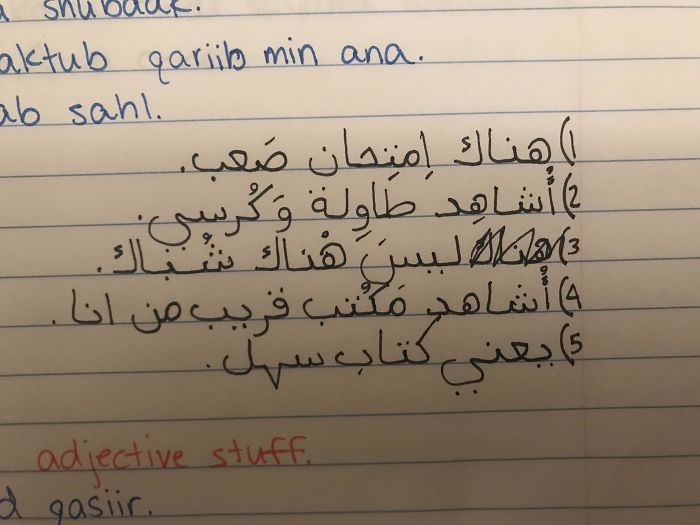 shubaak.
aktub qariib min ana.
ab sahl.
1) هُناك إِمتِحان صَعب.
2) أُشاهِد طَاوِلة وَ كُرسي.
3) ليسَ هُناك شُباك.
4) أُشاهِد مَكتب قريب من انا.
5) يعني كتاب سهل.
adjective stuff.
d qasiir.